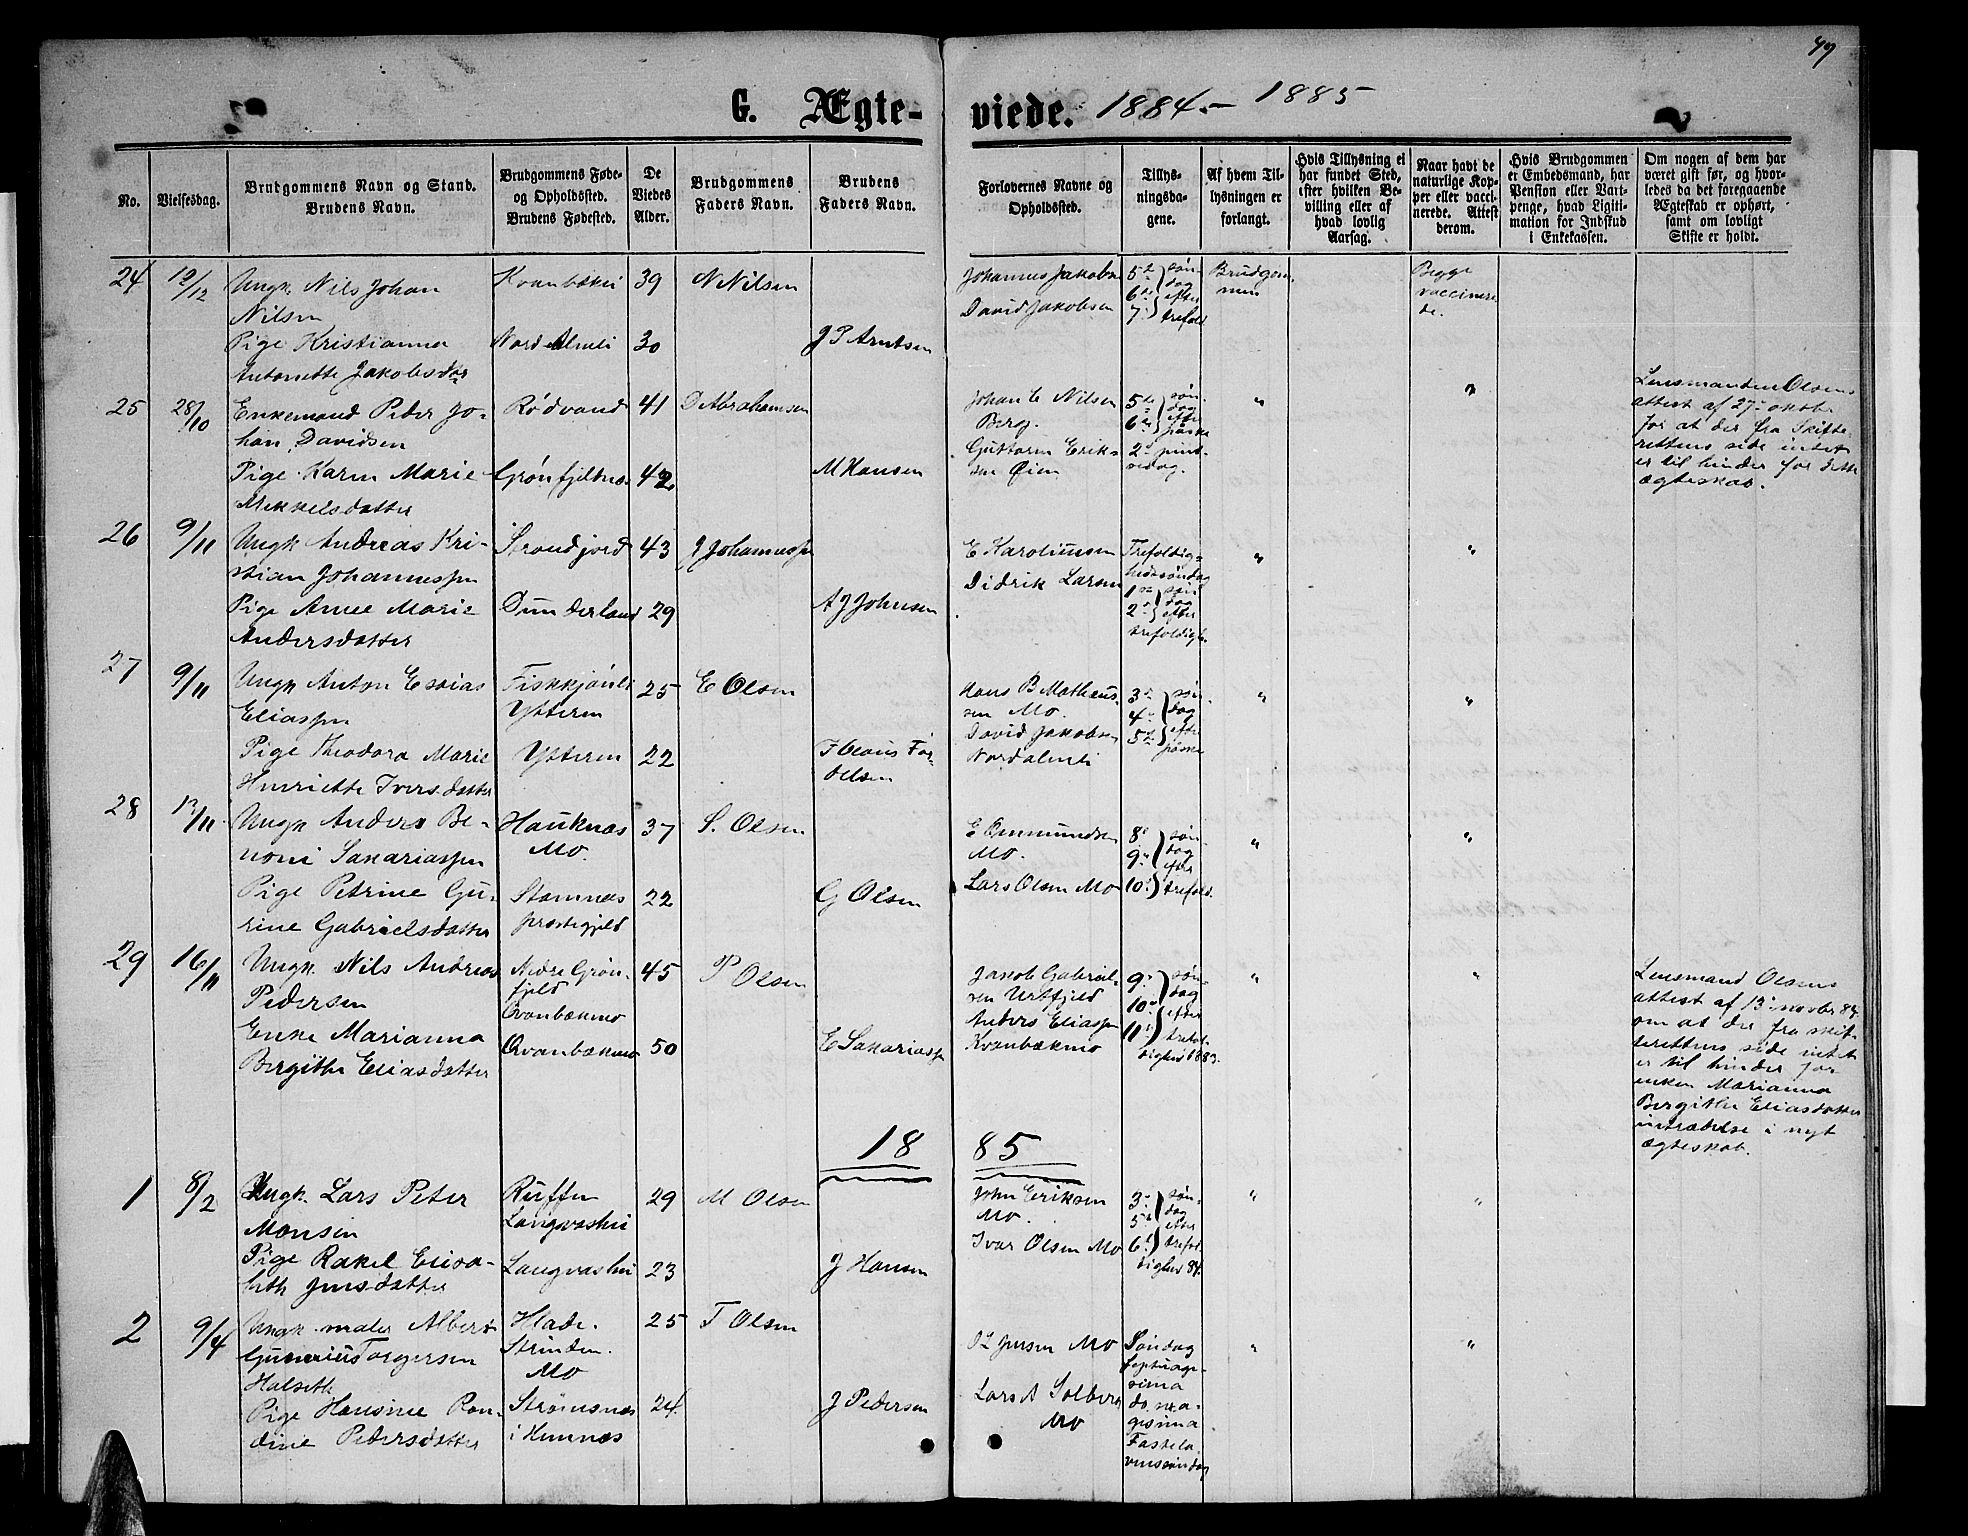 49
G. Ægte-
viede. 1884 - 1885
No.
Vielsesdag.
Brudgommens Navn og Stand.
Brudens Navn.
Brudgommens Føde-
og Opholdssted.
Brudens Fødested.
De
Viedes
Alder.
Brudgommens
Faders Navn.
Brudens
Faders Navn.
Forlovernes Navne og
Opholdssted.
Tillys-
ningsda-
gene.
Af hvem Til-
lysningen er
forlangt.
Hvis Tillysning ei
har fundet Sted,
efter hvilken Be-
villing eller af
hvad lovlig
Aarsag.
Naar havt de
naturlige Kop-
per eller vacci-
nerede. Attest
derom.
Hvis Brudgommen
er Embedsmand, har
Pension eller Vart-
penge, hvad Ligiti-
mation for Indskud
i Enkekassen.
Om nogen af dem har
været gift før, og hvor-
ledes da det foregaaende
Ægteskab er ophørt,
samt om lovligt
Skifte er holdt.
24
12/12
Ungk. Nils Johan
Nilsen
Pige Kristianna
Antonette Jakobsdor
39
30
N Nilsen
J P Arntsen
Johannes Jakobs
David Jakobsen
5 6 7 søn-
dag
efter
trefold
Brudgom
men
Begge
vaccinere
de.
25
28/10
Enkemand Peder Jo-
han Davidsen
Pige Karen Marie
Mikkelsdatter
Rødvand
Grønfjeldnæs
41
42
D Abrahamsen
M Hansen
Johan C Nilsen
Berg.
Guttorm Erik-
sen Øien
5 6 søn-
dag
efter
påske
2 pint-
sedag.
"
"
Lensmanden Olsens
attest af 27 oktobr
for at der fra Skifte-
rettens side intet
er til hinder for dette
ægteskab.
26
9/11
Ungk Andreas Kri-
stian Johannessen
Pige Anne Marie
Andersdatter
Strandjord
Dunderland
43
29
J Johannessen
A J Johnsen
E Karoliussen
Didrik Larsen
Trefoldig-
hedssøndag
1 2 søn
dag
efter
trefoldigh.
"
"
27
9/11
Ungk Anton Esaias
Eliassen
Pige Theodora Marie
Henriette Iversdatter
Ytteren
Ytteren
25
22
E Olsen
Hans B Matheus-
sen Mo.
David Jakobsen
3 4 5 søn-
dag
efter
påske
"
"
28
13/11
Ungk Anders Be-
noni Sakariassen
Pige Petrine Gu-
rine Gabrielsdatter
Hauknæs
Mo.
Stamnæs
prestegjeld
37
22
S. Olsen
G Olsen
E Ommundsen
Mo.
Lars Olsen Mo
8 9 10 søn-
dag
efter
trefold.
"
"
29
16/11
Ungk. Nils Andreas
Pedersen
Enke Marianna
Bergithe Eliasdatter
Nedre Grøn-
fjeld
Qvanbækmo
Qvanbækmo
45
50
P Olsen
E Sakariassen
Jakob Gabriel-
sen Urtfjeld
Anders Eliassen
Kvanbækmo
9 10 11 søn-
dag
efter
trefol-
dighed 1883.
"
"
Lensmand Olsens
attest af 13 novbr 84
om at der fra skif-
terettens side intet
er til hinder for
enken Marianna
Bergithe Eliasdatter
indtrædelse i nyt
ægteskab.
18 85
1
8/2
Ungk. Lars Peter
Monsen
Pige Rakel Elisa-
beth Jensdatter
Langvashei
29
23
M Olsen
J Hansen
John Eriksen
Mo.
Ivar Olsen Mo
3 5 6 søn-
dag
efter
trefol-
dighed 84.
"
"
2
9/4
Ungk. maler Albert
Gunerius Torgersen
Halseth
Pige Hansine Ran-
dine Pedersdatter
Hlade.
Strinden.
Mo
Strømsnæs
i Hemnæs
25
24
T Olsen
J Pedersen
O L Jensen Mo
Lars A Solberg
Mo
Søndag
septuage-
sima
sexa-
gesima
Fastela-
venssøndag
"
"